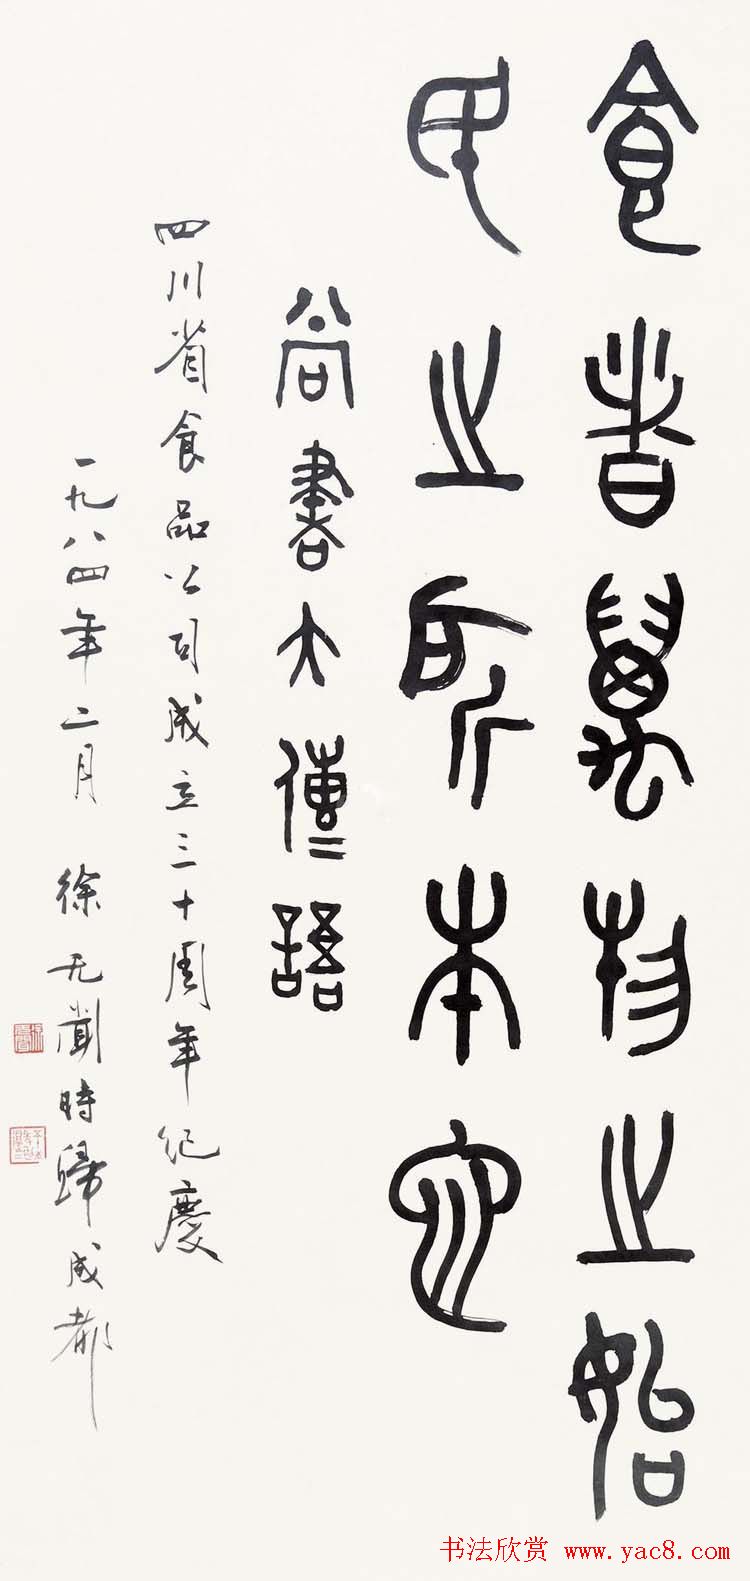 食者萬物之始
民之所本也
尚書大傳語
四川省食品公司成立三十周年纪慶
一九八四年二月 徐无聞時歸成都
书法欣赏 www.yac8.com